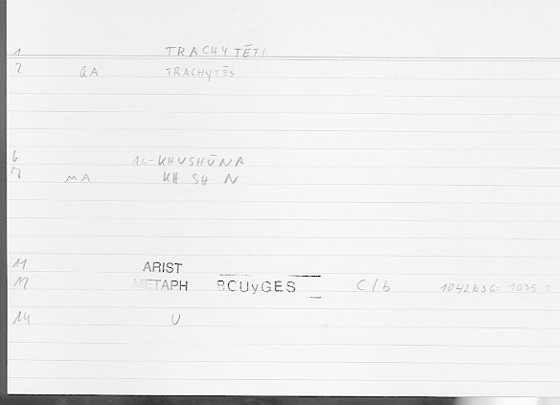 1 TRACHYTĒTI
2 GA TRACHYTĒS
6 AL-KHUSHŪNA
7 MA KH SH N
11 ARIST
12 METAPH BOUyGES C/b
14 U